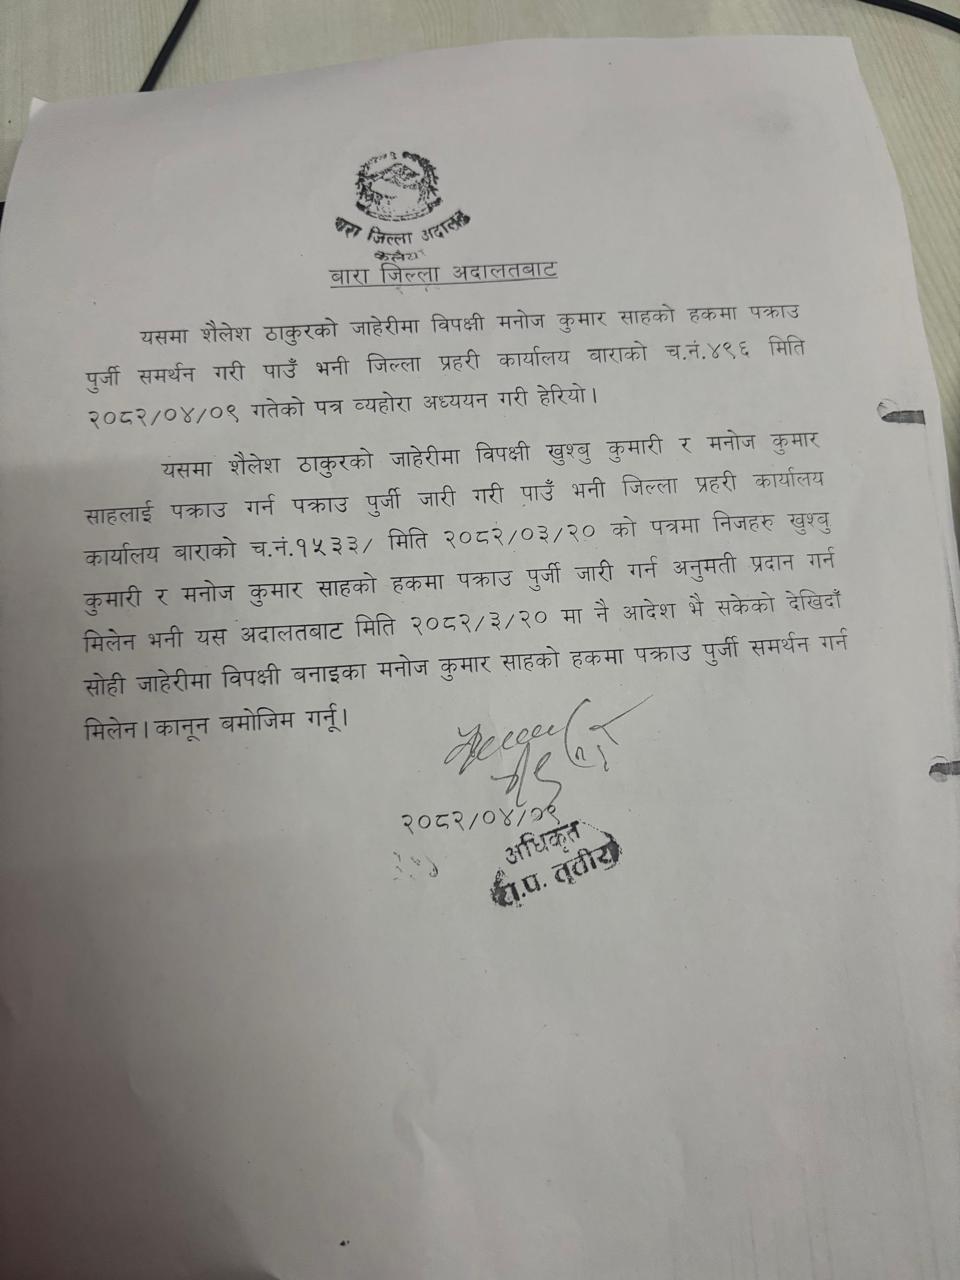 बारा जिल्ला अदालत
कलैया
बारा जिल्ला अदालतबाट
यसमा शैलेश ठाकुरको जाहेरीमा विपक्षी मनोज कुमार साहको हकमा पक्राउ
पुर्जी समर्थन गरी पाउँ भनी जिल्ला प्रहरी कार्यालय बाराको च.नं.४९६ मिति
२०८२/०४/०९ गतेको पत्र व्यहोरा अध्ययन गरी हेरियो।
यसमा शैलेश ठाकुरको जाहेरीमा विपक्षी खुश्बु कुमारी र मनोज कुमार
साहलाई पक्राउ गर्न पक्राउ पुर्जी जारी गरी पाउँ भनी जिल्ला प्रहरी कार्यालय
कार्यालय बाराको च.नं.१५३३/ मिति २०८२/०३/२० को पत्रमा निजहरु खुश्बु
कुमारी र मनोज कुमार साहको हकमा पक्राउ पुर्जी जारी गर्न अनुमती प्रदान गर्न
मिलेन भनी यस अदालतबाट मिति २०८२/३/२० मा नै आदेश भै सकेको देखिदाँ
सोही जाहेरीमा विपक्षी बनाइका मनोज कुमार साहको हकमा पक्राउ पुर्जी समर्थन गर्न
मिलेन। कानून बमोजिम गर्नू।
२०८२/०४/०९
अधिकृत
रा.प. तृतीय